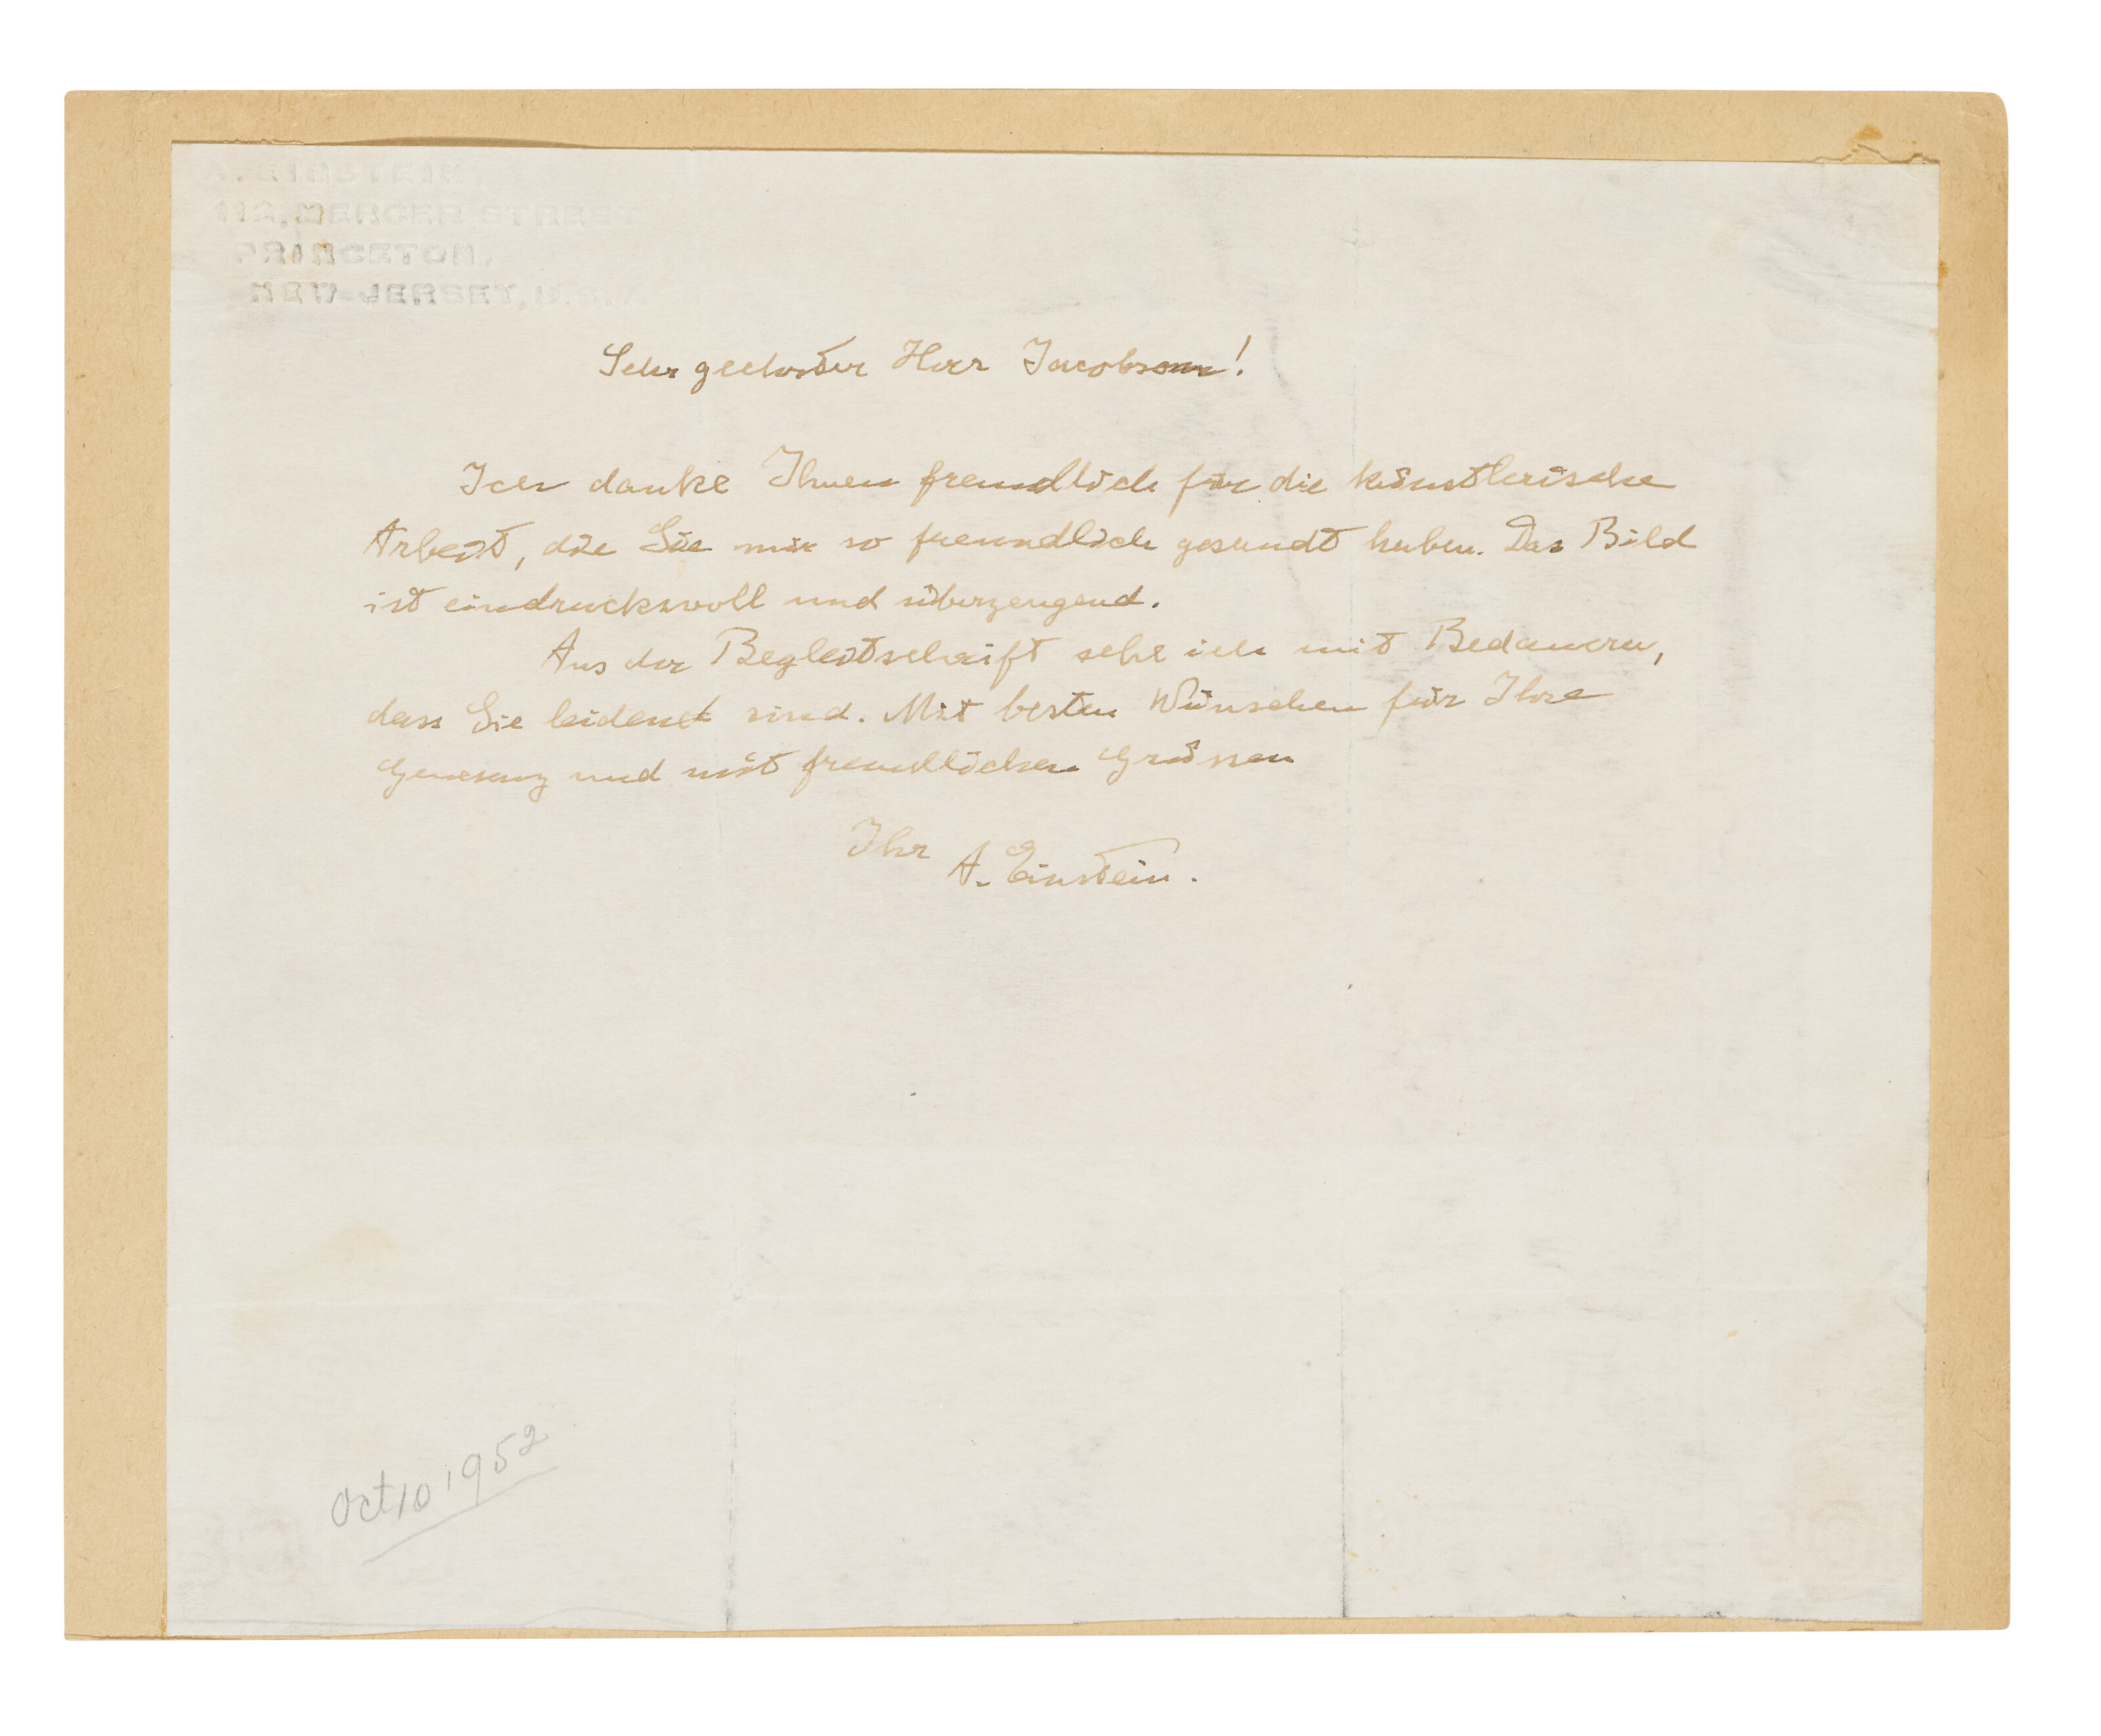 A. EINSTEIN,
112, MERCER STREET
PRINCETON,
NEW-JERSEY, U.S.A.
Sehr geehrter Herr Jacobson!
Ich danke Ihnen freundlich für die künstlerische
Arbeit, die Sie mir so freundlich gesandt haben. Das Bild
ist eindrucksvoll und überzeugend.
Aus der Begleitschrift sehe ich mit Bedauern,
dass Sie leidend sind. Mit besten Wünschen für Ihre
Genesung und mit freundlichen Grüssen
Ihr
A. Einstein.
Oct 10 1952